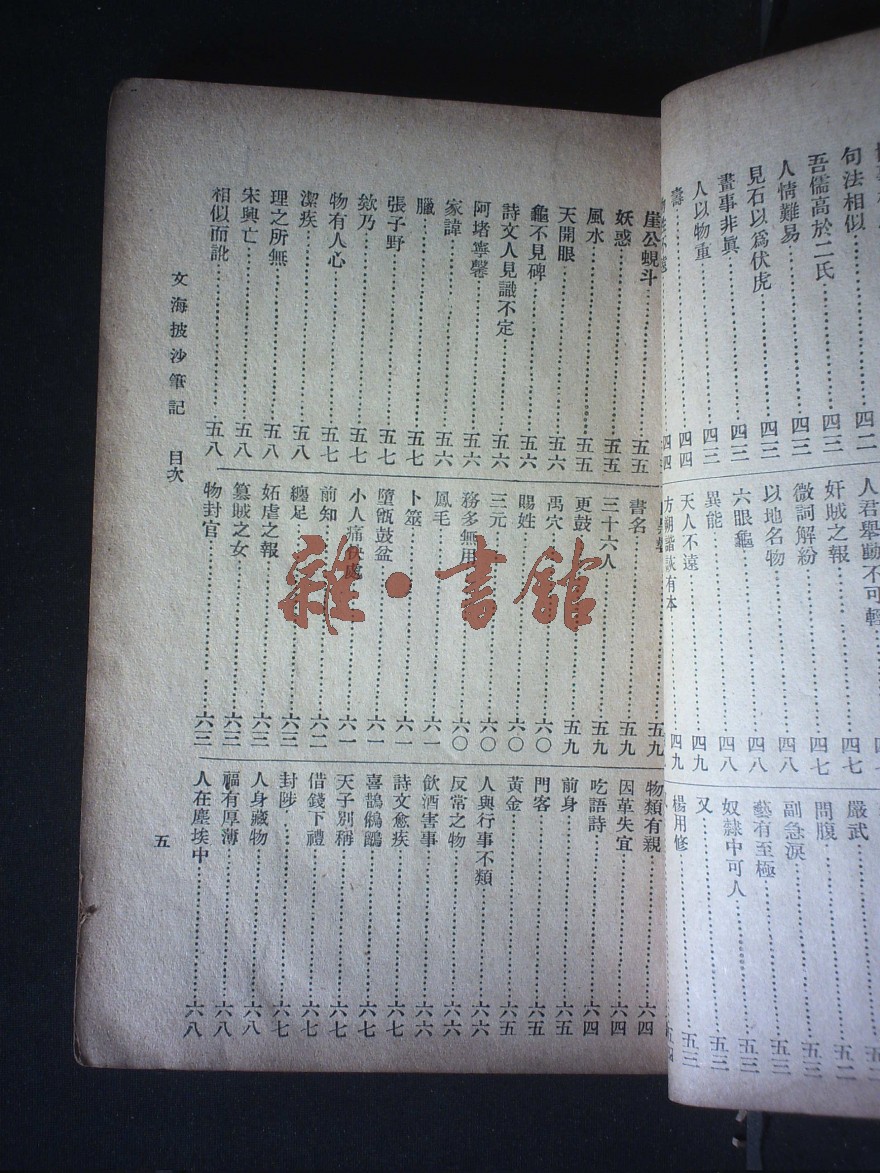 句法相似……四二
吾儒高於二氏……四三
人情難易……四三
見石以爲伏虎……四三
畫事非眞……四三
人以物重……四三
壽……四四
四四
人君舉動不可輕……四七
奸賊之報……四七
微詞解紛……四七
以地名物……四八
六眼龜……四八
異能……四八
天人不遠……四九
方朔諧詼有本……四九
嚴武……五二
問腹……五二
副急淚……五三
藝有至極……五三
奴隸中可人……五三
又……五三
楊用修……五三
崖公蜆斗……五五
妖惑……五五
風水……五五
天開眼……五六
龜不見碑……五六
詩文人見識不定……五六
阿堵寧馨……五六
家諱……五六
臘……五七
張子野……五七
欸乃……五七
物有人心……五七
潔疾……五八
理之所無……五八
宋興亡……五八
相似而訛……五八
五九
書名……五九
三十六人……五九
更鼓……五九
禹穴……六〇
賜姓……六〇
三元……六〇
務多無用……六〇
鳳毛……六一
卜筮……六一
墮甑鼓盆……六一
小人痛快處……六一
前知……六二
纏足……六三
妬虐之報……六三
篡賊之女……六三
物封官……六三
物類有親……六四
因革失宜……六四
吃語詩……六四
前身……六五
門客……六五
黃金……六五
人與行事不類……六六
反常之物……六六
飲酒害事……六六
詩文愈疾……六七
喜鵲鵂鶹……六七
天子別稱……六七
借錢下禮……六七
封陟……六七
人身藏物……六八
福有厚薄……六八
人在塵埃中……六八
文海披沙筆記 目次
五
雜·書館